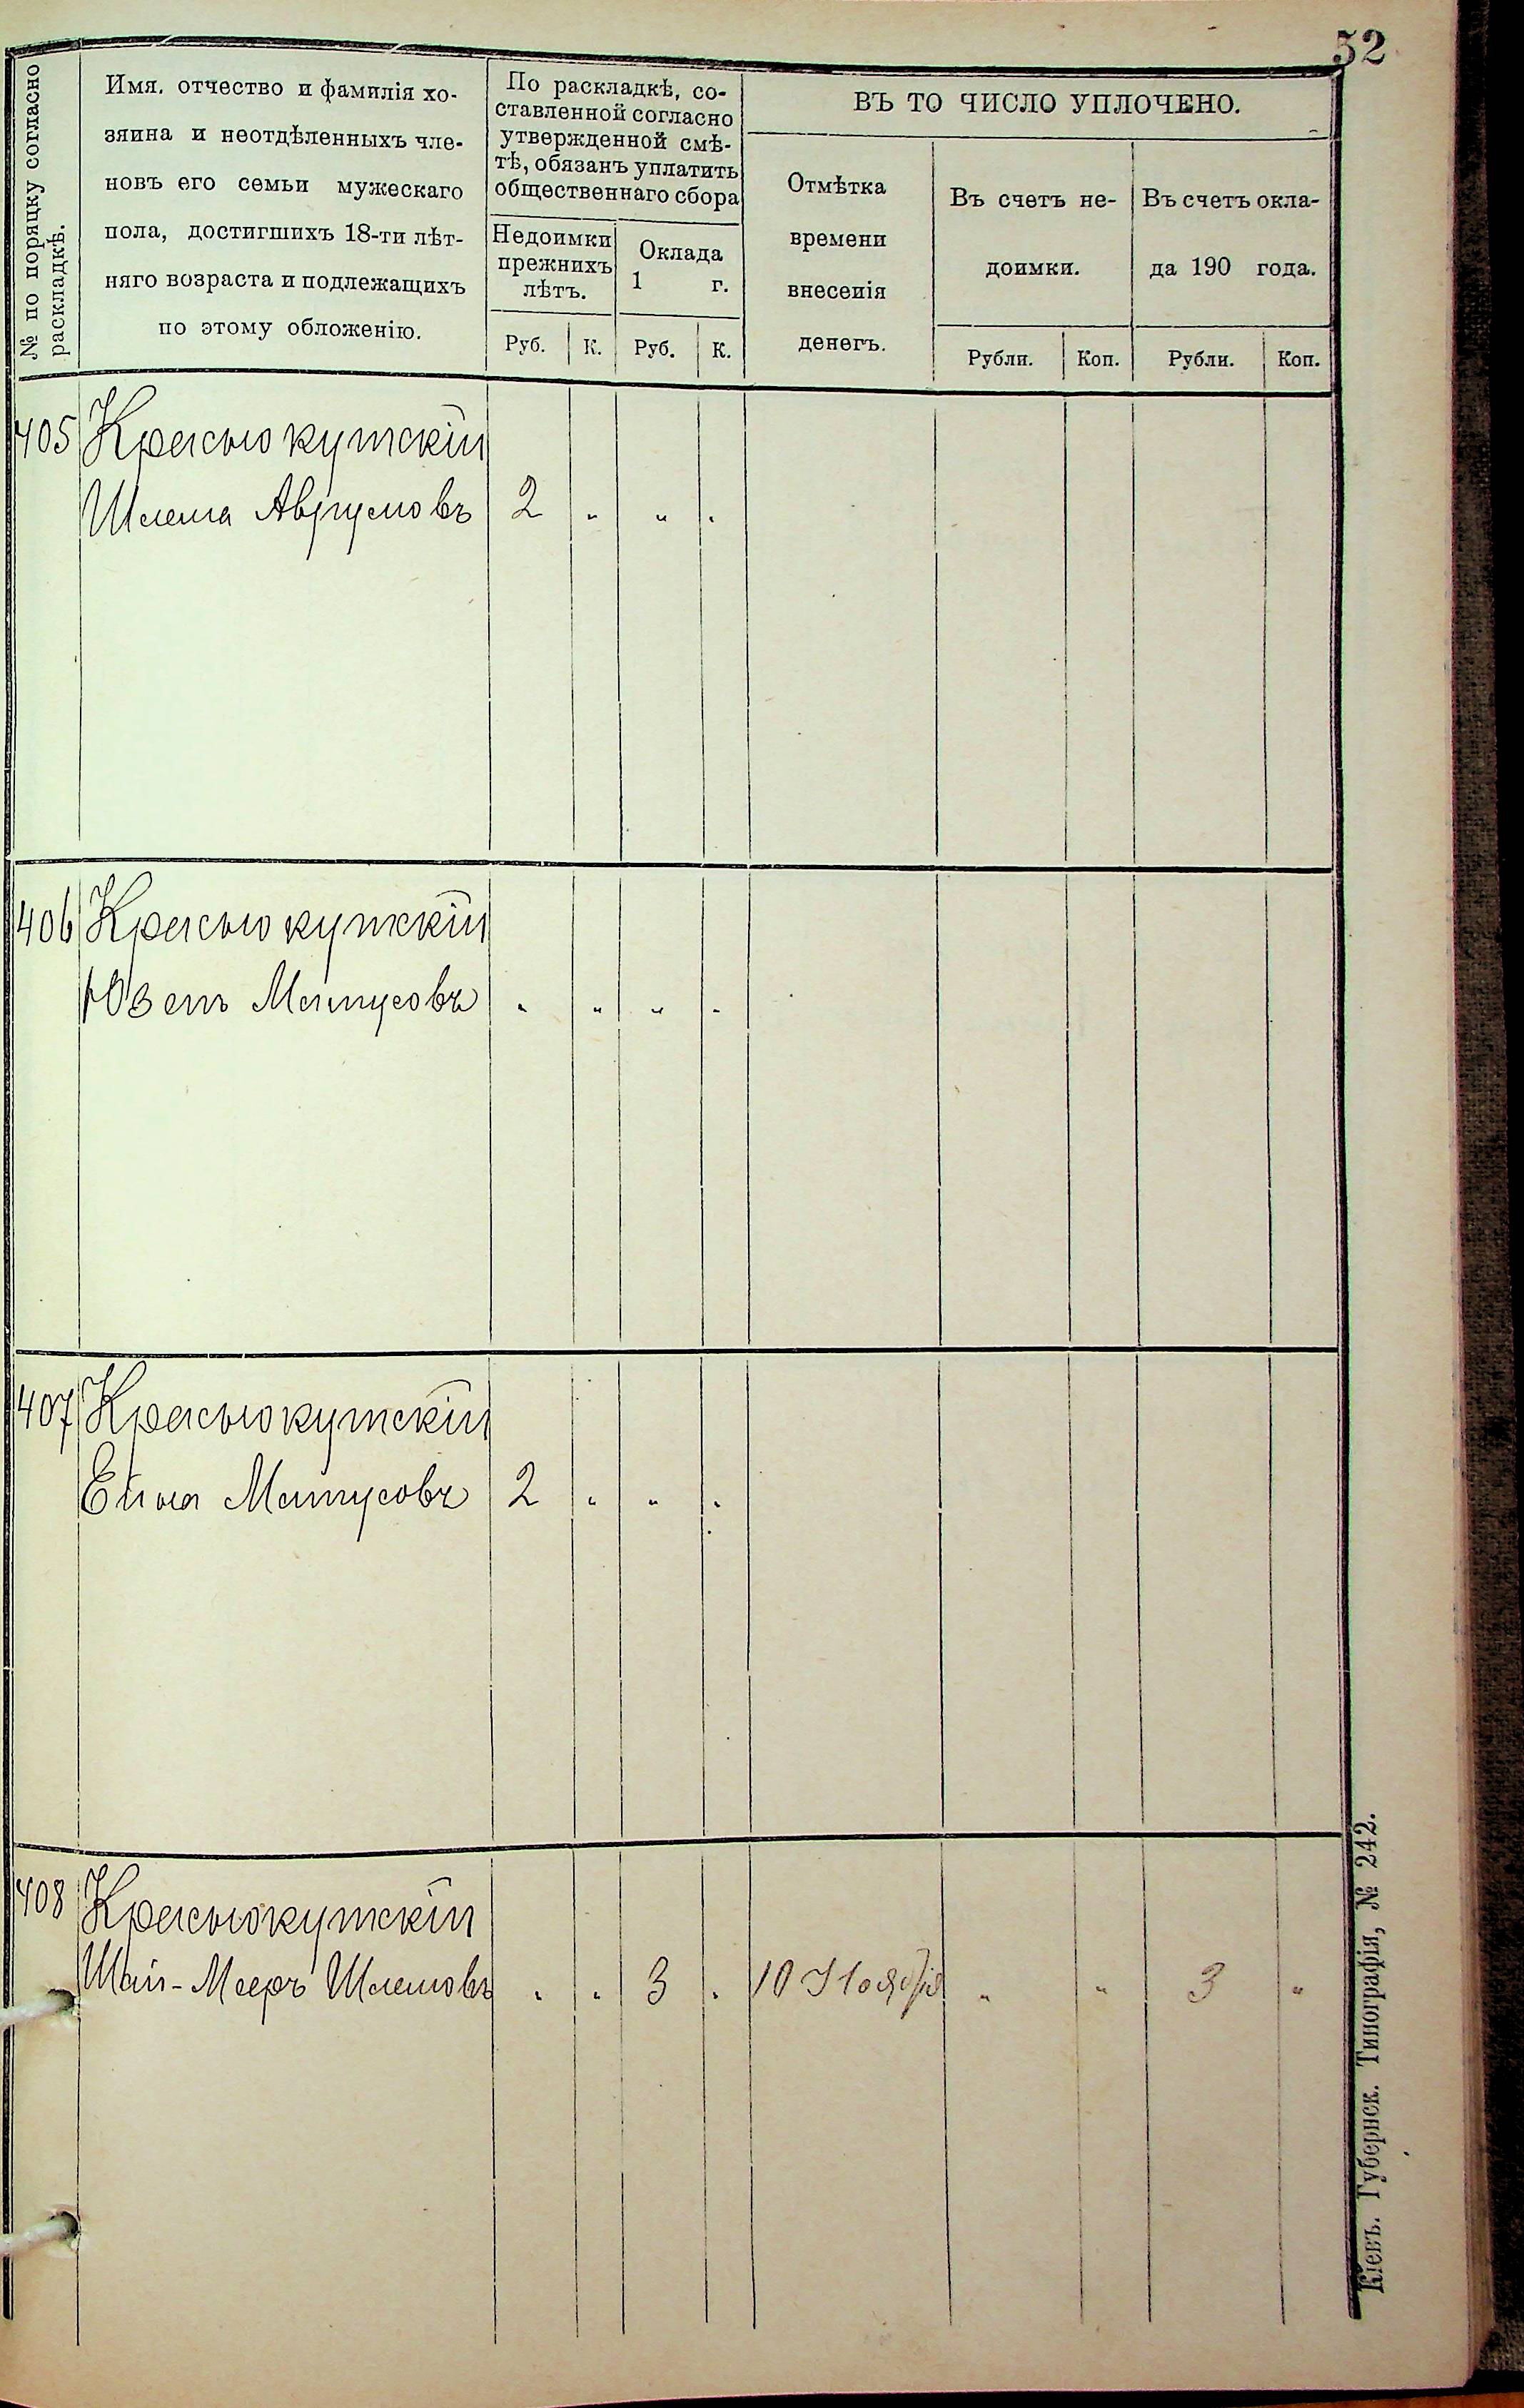 52
№ по порядку согласно
раскладкѣ.
Имя, отчество и фамилія хо-
зяина и неотдѣленныхъ чле-
новъ его семьи мужескаго
пола, достигшихъ 18-ти лѣт-
няго возраста и подлежащихъ
по этому обложенію.
По раскладкѣ, со-
ставленной согласно
утвержденной смѣ-
тѣ, обязанъ уплатить
общественнаго сбора
Недоимки
прежнихъ
лѣтъ.
Оклада
1 г.
Руб. К. Руб. К.
ВЪ ТО ЧИСЛО УПЛОЧЕНО.
Отмѣтка
времени
внесенія
денегъ.
Въ счетъ не-
доимки.
Въ счетъ окла-
да 190 года.
Рубли. Коп. Рубли. Коп.
405 Краснокутскій
Шлема Аврумовъ 2 " " "
406 Краснокутскій
Юзепъ Матусовъ " " " "
407 Краснокутскій
Ейна Матусовъ 2 " " "
408 Краснокутскій
Шая-Мееръ Шлемовъ " " 3 " 10 Ноября " " 3 "
Кіевъ. Губернск. Типографія, № 242.